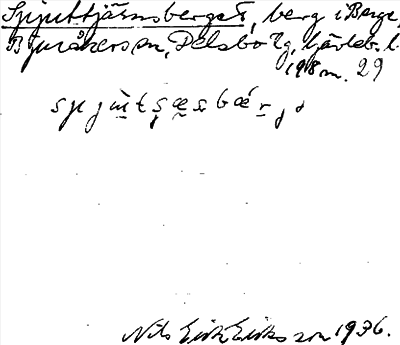 Spjuttjärnsberget, berg i Berge,
Bjuråkers sn, Delsbo tg, Gävleb. l.
198 m. 29
Nils Erik Eriksson 1936.